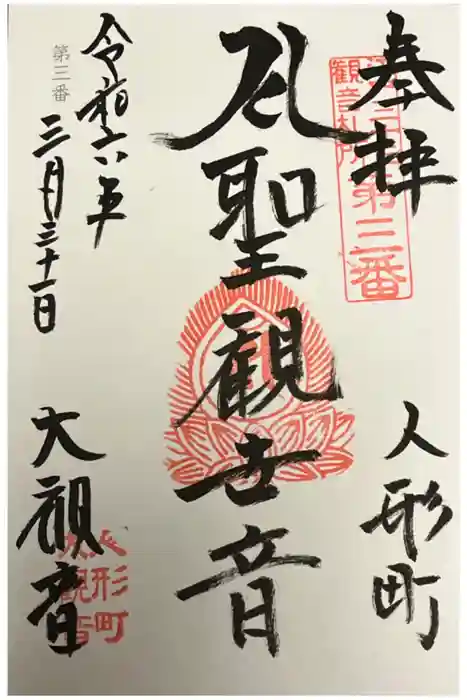 奉拝
人形町
聖観世音
令和六年
三月三十一日
大観音
第三番
観音札所
第三番
人形町
大観音